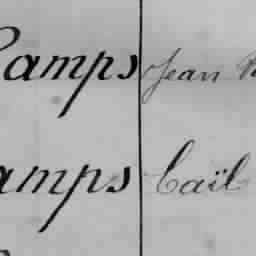 Camps Jean
amps Caïl